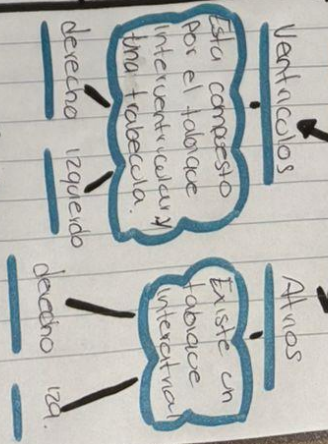 Ventriculos
Esta compuesto
por el tabique
interventricular y
una trabecula.
derecho
izquierdo
Atrios
Existe un
tabique
interatrial
derecho
izq.